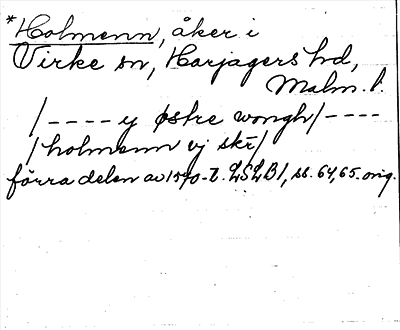 *Holmenn, åker i
Virke sn, Harjagers hd,
Malm. l.
/---- y østre wongh/----
/holmenn vj skr/
förra delen av 1570-t. LSLB1, ss. 64, 65. orig.